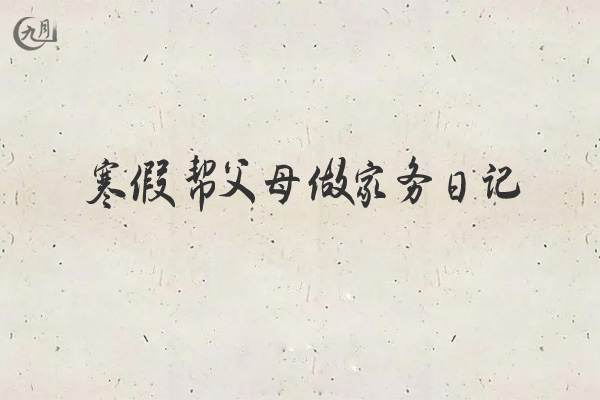 九月
寒假帮父母做家务日记